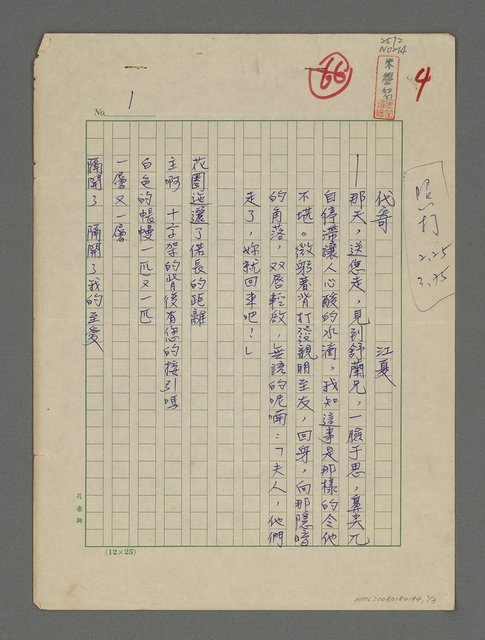 2572
NO214
66
4
照打
2.25
3.35
No. 1
代寄 江夏
——那天，送您走，見到舒蘭兄，一臉于思，鼻尖兀
自停滯讓人心酸的水滴，我知這事是那樣的令他
不堪。微躬著背打發親朋至友，回身，向那隱暗
的角落，双唇輕啟，無語的呢喃：「夫人，他們
走了，妳就回來吧！」
花圈迤邐了備長的距離
主啊 十字架的背後有您的接引嗎
白色的帳幔一匹又一匹
一層又一層
隔開了 隔開了我的至愛
孔雀牌
(12×25)
NMHL20080180194, 1/3